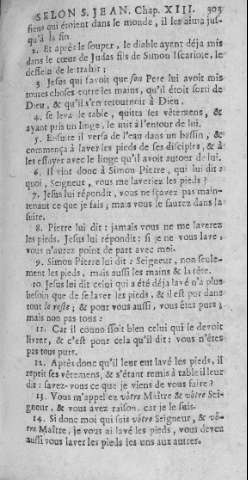 SELON S. JEAN. Chap. XIII. 303
siens qui étoient dans le monde, il les aima jus-
qu'à la fin
2. Et après le souper, le diable ayant déja mis
dans le cœur de Judas fils de Simon Iscariote, le
dessein de le trahir;
3 Jesus qui savoit que son Pere lui avoit mis
toutes choses entre les mains, qu'il étoit sorti de
Dieu, & qu'il s'en retournoit à Dieu,
4. se leva de table, quitta ses vêtemens, &
ayant pris un linge, le mit à l'entour de lui.
5. Ensuite il versa de l'eau dans un bassin, &
commença à lavez les pieds de ses disciples, & à
les essuyer avec le linge qu'il avoit autour de lui.
6. Il vint donc à Simon Pierre, qui lui dit:
quoi, Seigneur, vous me laveriez les pieds?
7. Jesus lui répondit, vous ne sçavez pas main-
tenant ce que je fais; mais vous le saurez dans la
suite.
8. Pierre lui dit: jamais vous ne me laverez
les pieds. Jesus lui répondit: si je ne vous lave,
vous n'aurez point de part avec moi.
9. Simon Pierre lui dit: Seigneur, non seule-
ment les pieds, mais aussi les mains & la tête.
10. Jesus lui dit celui qui a été déja lavé n'a plus
besoin que de se laver les pieds, & il est pur dans
tout le reste; & pour vous aussi, vous êtes purs;
mais non pas tous:
11. Car il connoissoit bien celui qui le devoit
livrer, & c'est pour cela qu'il dit: vous n'êtes
pas tous purs.
12. Après donc qu'il leur eut lavé les pieds, il
reprit ses vêtemens, & s'étant remis à table il leur
dit: savez-vous ce que je viens de vous faire?
13. Vous m'appelez vôtre Maître & vôtre Sei-
gneur, & vous avez raison, car je le suis.
14. Si donc moi qui suis vôtre Seigneur, & vô-
tre Maître, je vous ai lavé les pieds, vous devez
aussi vous laver les pieds les uns aux autres.